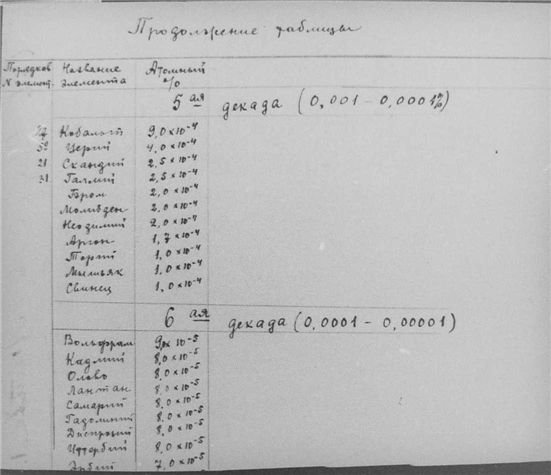 Продолжение таблицы
Порядков Название Атомный
N элемент. элемента %
5 ая декада (0,001 – 0,0001%)
27 Кобальт 9,0×10-4
58 Церий 4,0×10-4
21 Скандий 2,5×10-4
31 Галлий 2,5×10-4
Бром 2,0×10-4
Молибден 2,0×10-4
Неодимий 2,0×10-4
Аргон 1,7×10-4
Торий 1,0×10-4
Мышьяк 1,0×10-4
Свинец 1,0×10-4
6 ая декада (0,0001 – 0,00001)
Вольфрам 9,0×10-5
Кадмий 8,0×10-5
Олово 8,0×10-5
Лантан 8,0×10-5
Самарий 8,0×10-5
Гадолиний 8,0×10-5
Диспрозий 8,0×10-5
Иттербий 8,0×10-5
Эрбий 7,0×10-5